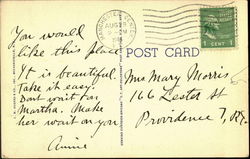 You would
like this place
It is beautiful
Take it easy.
Dont wait for
Martha. Make
her wait on you
Annie
AUG 28
POST CARD
1 CENT 1
Mrs Mary Morris
166 Lester St
Providence 7, R.I.